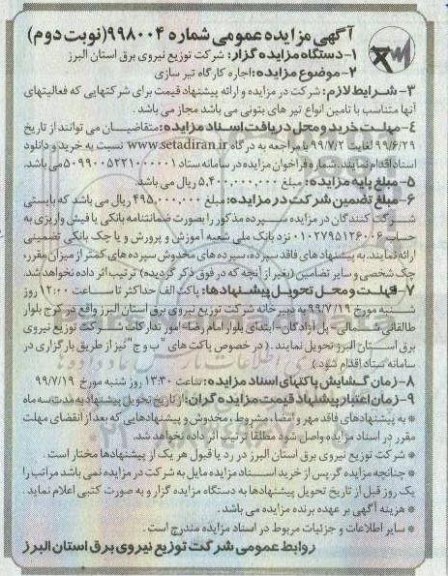 آگهی مزایده عمومی شماره ۹۹۸۰۰۴ (نوبت دوم)
۱- دستگاه مزایده گزار: شرکت توزیع نیروی برق استان البرز
۲- موضوع مزایده: اجاره کارگاه تیر سازی
۳- شرایط لازم: شرکت در مزایده و ارائه پیشنهاد قیمت برای شرکتهایی که فعالیتهای
آنها متناسب با تامین انواع تیر های بتونی می باشد مجاز می باشد.
۴- مهلت خرید و محل دریافت اسناد مزایده: متقاضیان می توانند از تاریخ
۹۹/۶/۲۹ لغایت ۹۹/۷/۲ با مراجعه به درگاه www.setadiran.ir نسبت به خرید و دانلود
اسناد اقدام نمایند. شماره فراخوان مزایده در سامانه ستاد ۵۰۹۹۰۰۵۲۲۱۰۰۰۰۰۱ می باشد.
۵- مبلغ پایه مزایده: مبلغ ۵,۴۰۰,۰۰۰,۰۰۰ ریال می باشد.
۶- مبلغ تضمین شرکت در مزایده: مبلغ ۴۹۵,۰۰۰,۰۰۰ ریال می باشد که بایستی
شرکت کنندگان در مزایده سپرده مذکور را بصورت ضمانتنامه بانکی یا فیش واریزی به
حساب ۰۱۰۲۷۹۵۱۲۶۰۰۶ نزد بانک ملی شعبه آموزش و پرورش و یا چک بانکی تضمینی
ارائه نمایند. به پیشنهاد های فاقد سپرده، سپرده های مخدوش سپرده های کمتر از میزان مقرر،
چک شخصی و سایر تضامین (بغیر از آنچه که در فوق ذکر گردیده) ترتیب اثر داده نخواهد شد.
۷- مهلت و محل تحویل پیشنهادها: پاکت الف حداکثر تا ساعت ۱۲:۰۰ روز
شنبه مورخ ۹۹/۷/۱۹ به دبیرخانه شرکت توزیع نیروی برق استان البرز واقع در کرج بلوار
طالقانی شمالی- میدان آزادگان- ابتدای بلوار امام رضا- امور تدارکات شرکت توزیع نیروی
برق استان البرز تحویل نمایند. (در خصوص پاکت های "ب و ج" نیز از طریق بارگزاری در
سامانه ستاد اقدام شود)
۸- زمان گشایش پاکتهای اسناد مزایده: ساعت ۱۳:۳۰ روز شنبه مورخ ۹۹/۷/۱۹
۹- زمان اعتبار پیشنهاد قیمت مزایده گران: از تاریخ تحویل پیشنهاد به مدت سه ماه
* به پیشنهادهای فاقد مهر و امضا، مشروط، مخدوش و پیشنهادهایی که بعد از انقضای مهلت
مقرر در اسناد مزایده واصل شود مطلقا ترتیب اثر داده نخواهد شد.
* شرکت توزیع نیروی برق استان البرز در رد یا قبول هر یک از پیشنهادها مختار است.
* چنانچه مزایده گر پس از خرید اسناد مزایده مایل به شرکت در مزایده نمی باشد مراتب را
یک روز قبل از تاریخ تحویل پیشنهادها به دستگاه مزایده گزار و به صورت کتبی اعلام نماید.
* هزینه آگهی بر عهده برنده مزایده می باشد.
* سایر اطلاعات و جزئیات مربوط در اسناد مزایده مندرج است.
روابط عمومی شرکت توزیع نیروی برق استان البرز